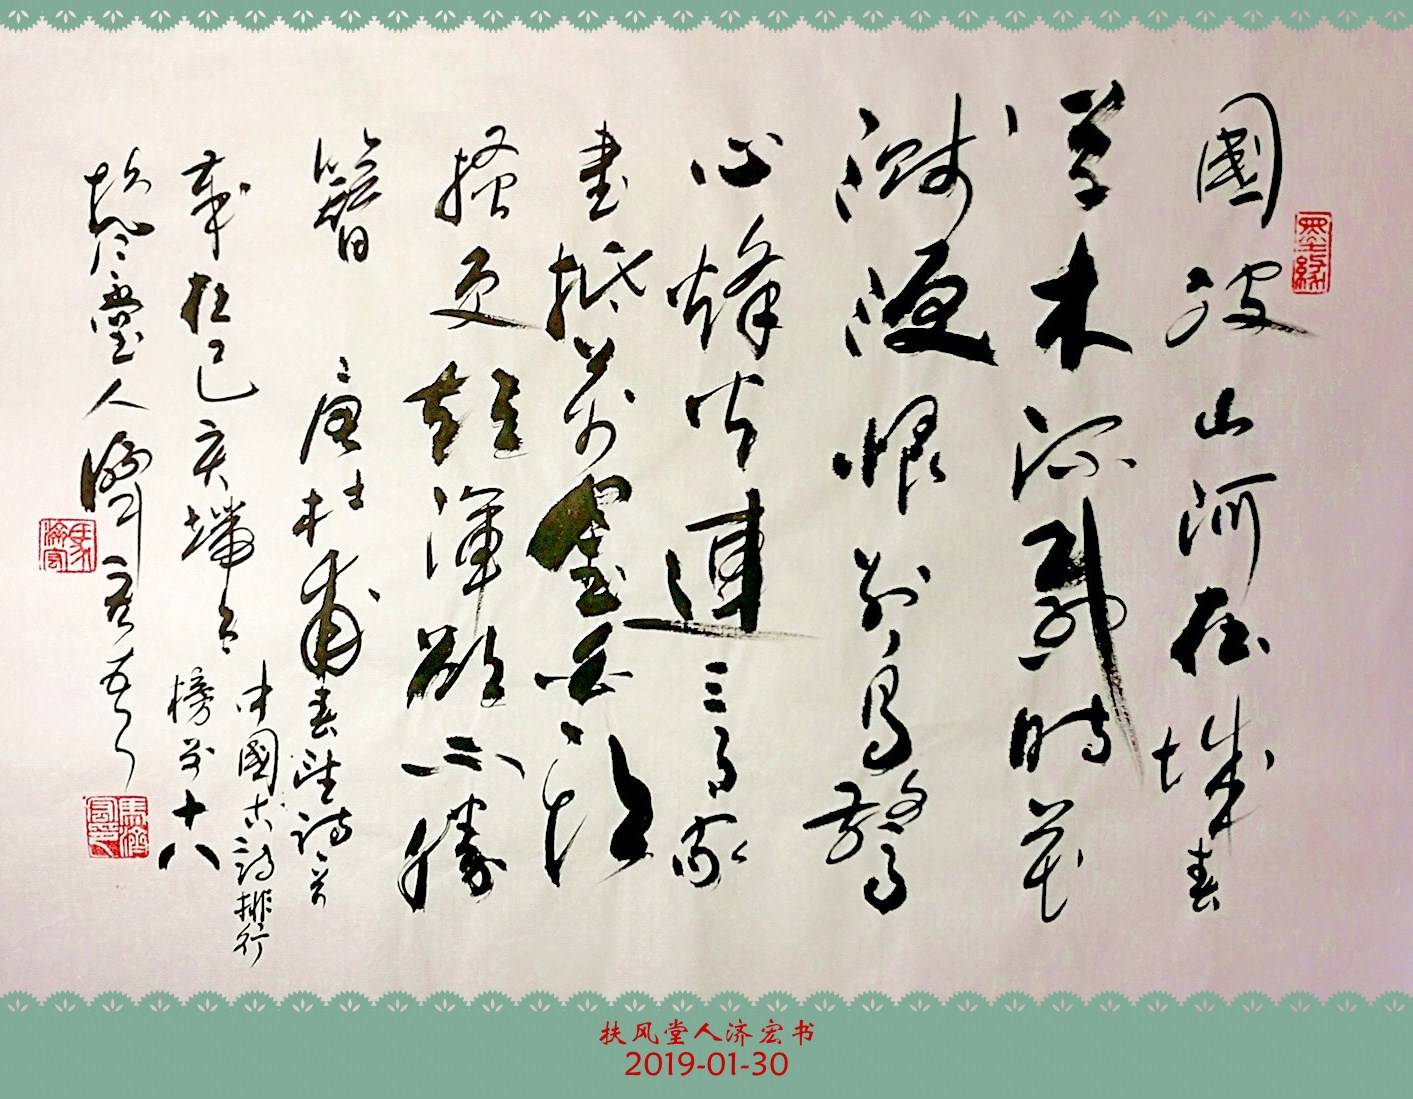 墨緣
國破山河在城春
草木深感時花
濺淚恨別鳥驚
心烽火連三月家
書抵萬金白頭
搔更短渾欲不勝
簪 唐杜甫春望詩
中國古詩排行
榜第十八
己亥端月
扶風堂人濟宏書
馬濟宏
馬濟宏印
扶风堂人济宏书
2019-01-30